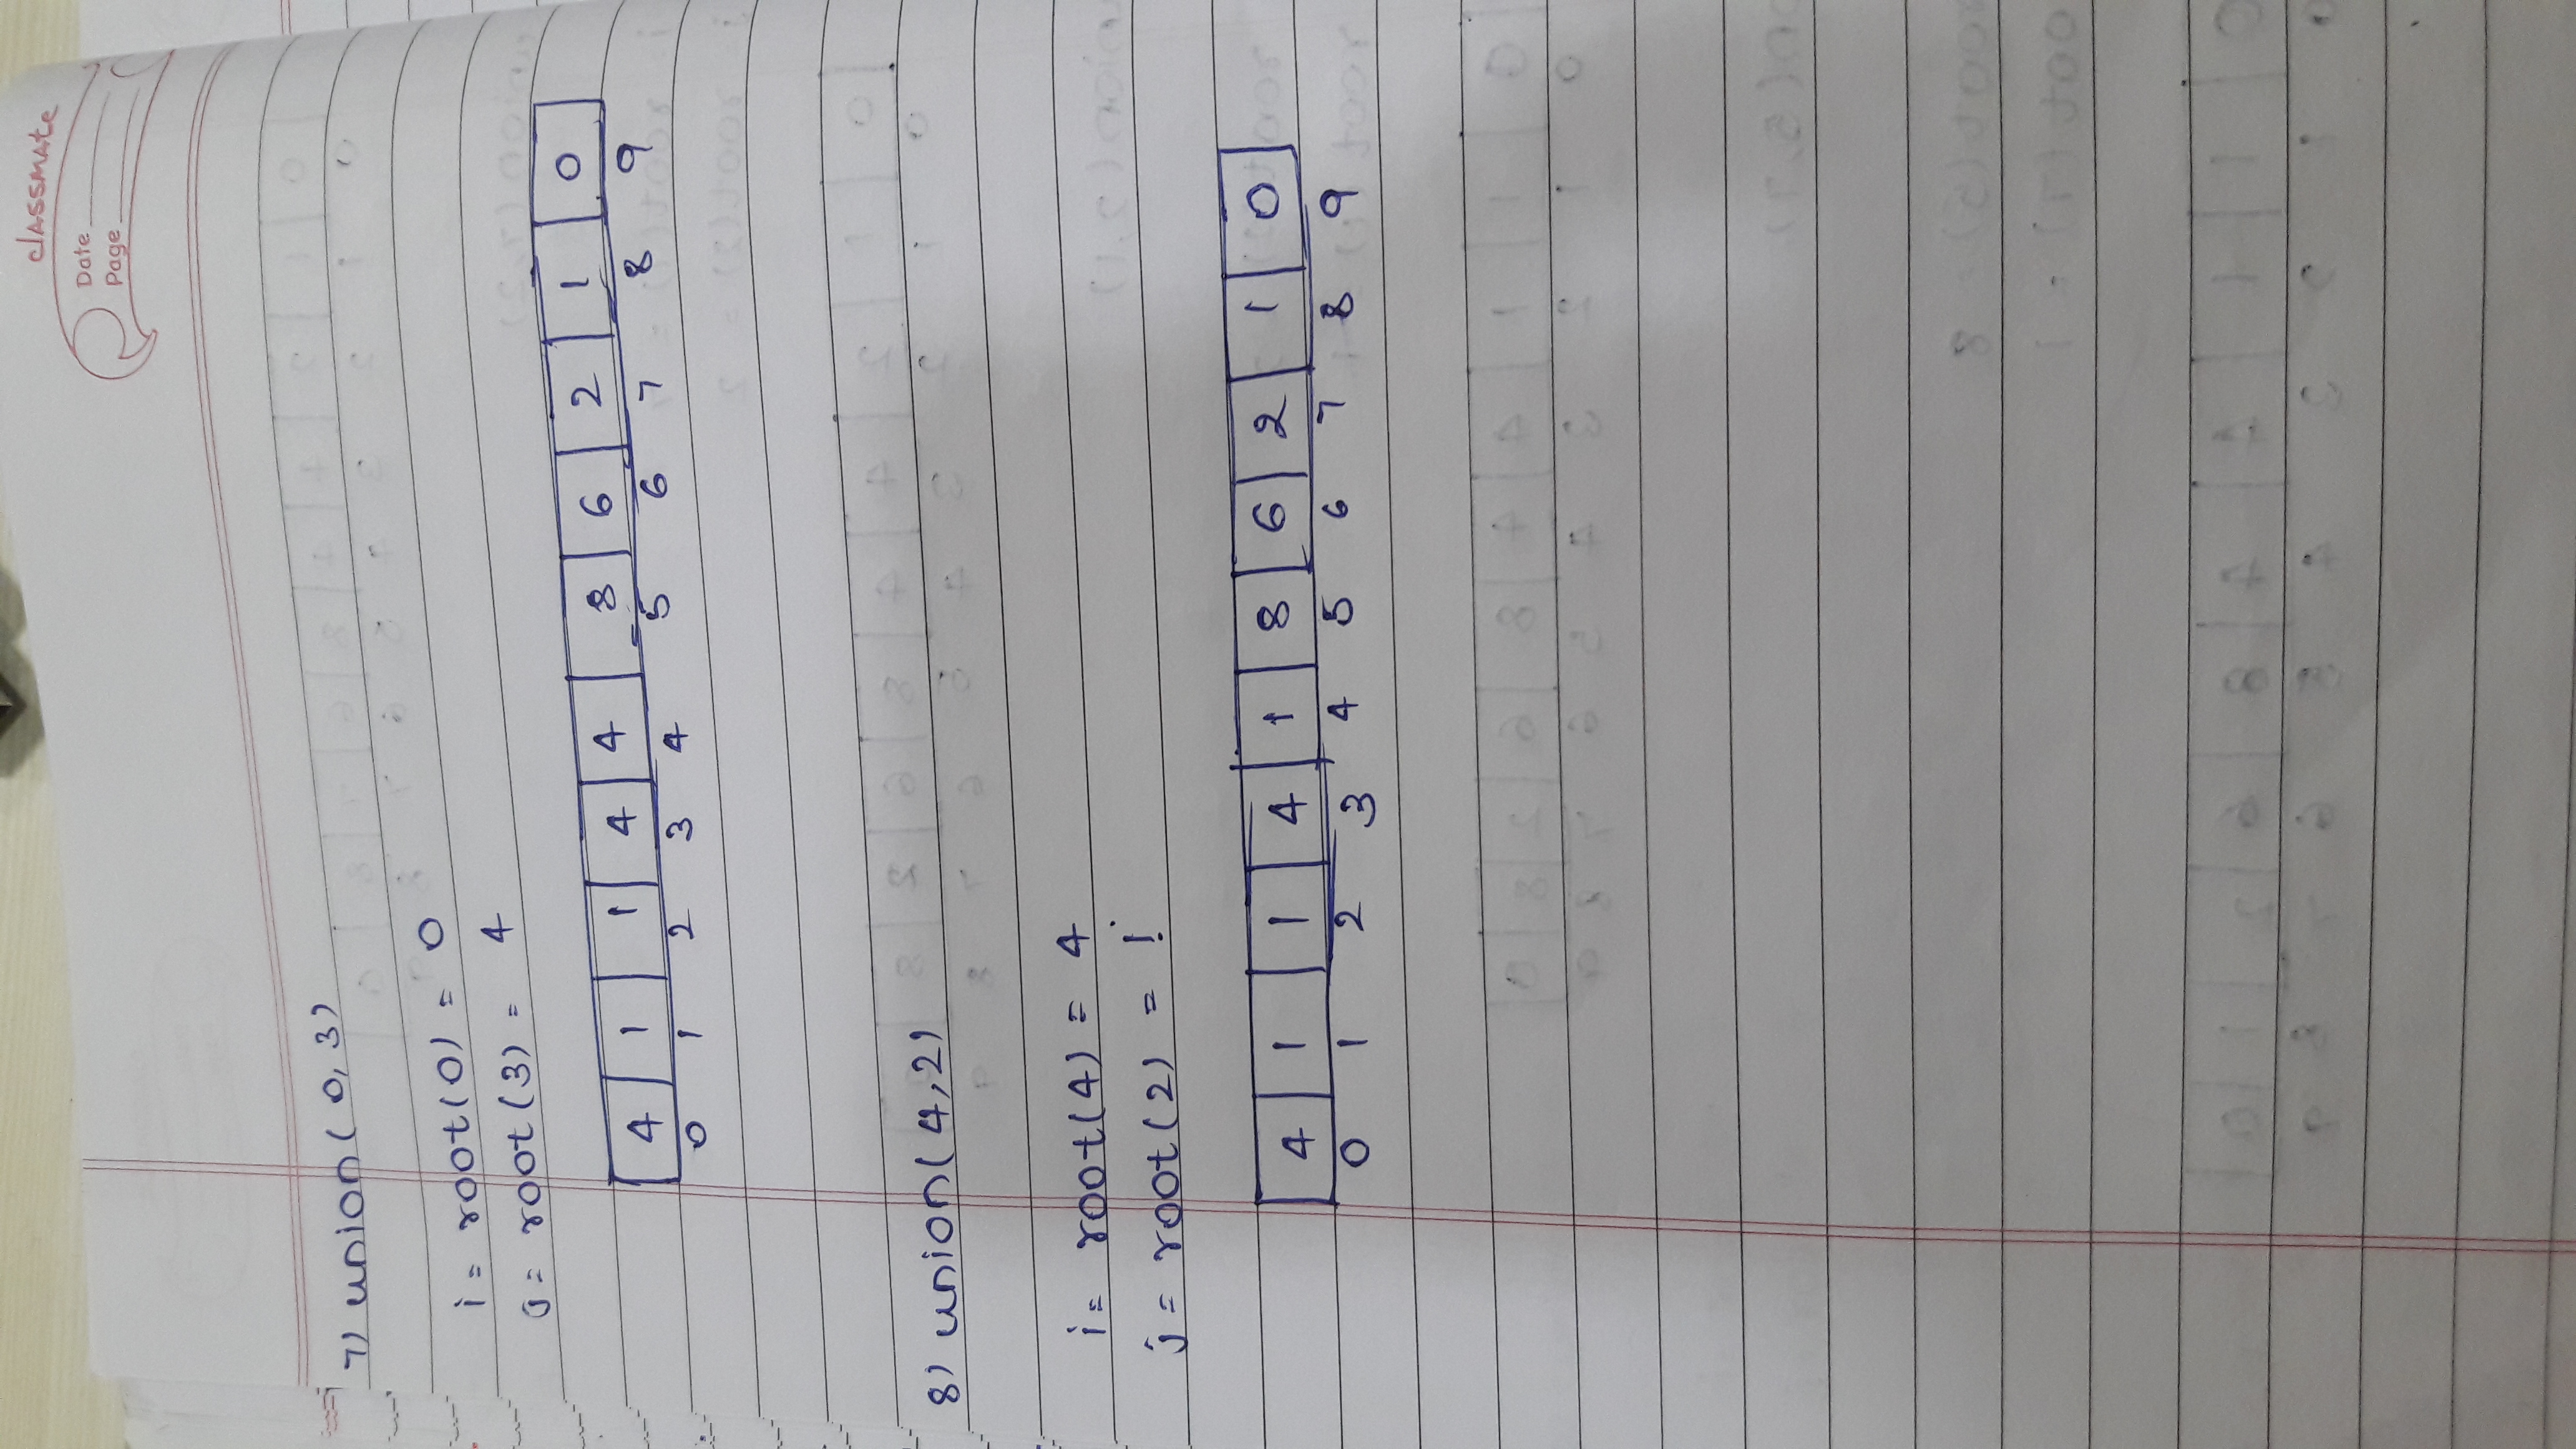 classmate
Date
Page
7) union( 0, 3)
i = root(0) = 0
j = root(3) = 4
4 1 1 4 4 8 6 2 1 0
0 1 2 3 4 5 6 7 8 9
8) union( 4, 2)
i = root(4) = 4
j = root(2) = 1
4 1 1 4 1 8 6 2 1 0
0 1 2 3 4 5 6 7 8 9